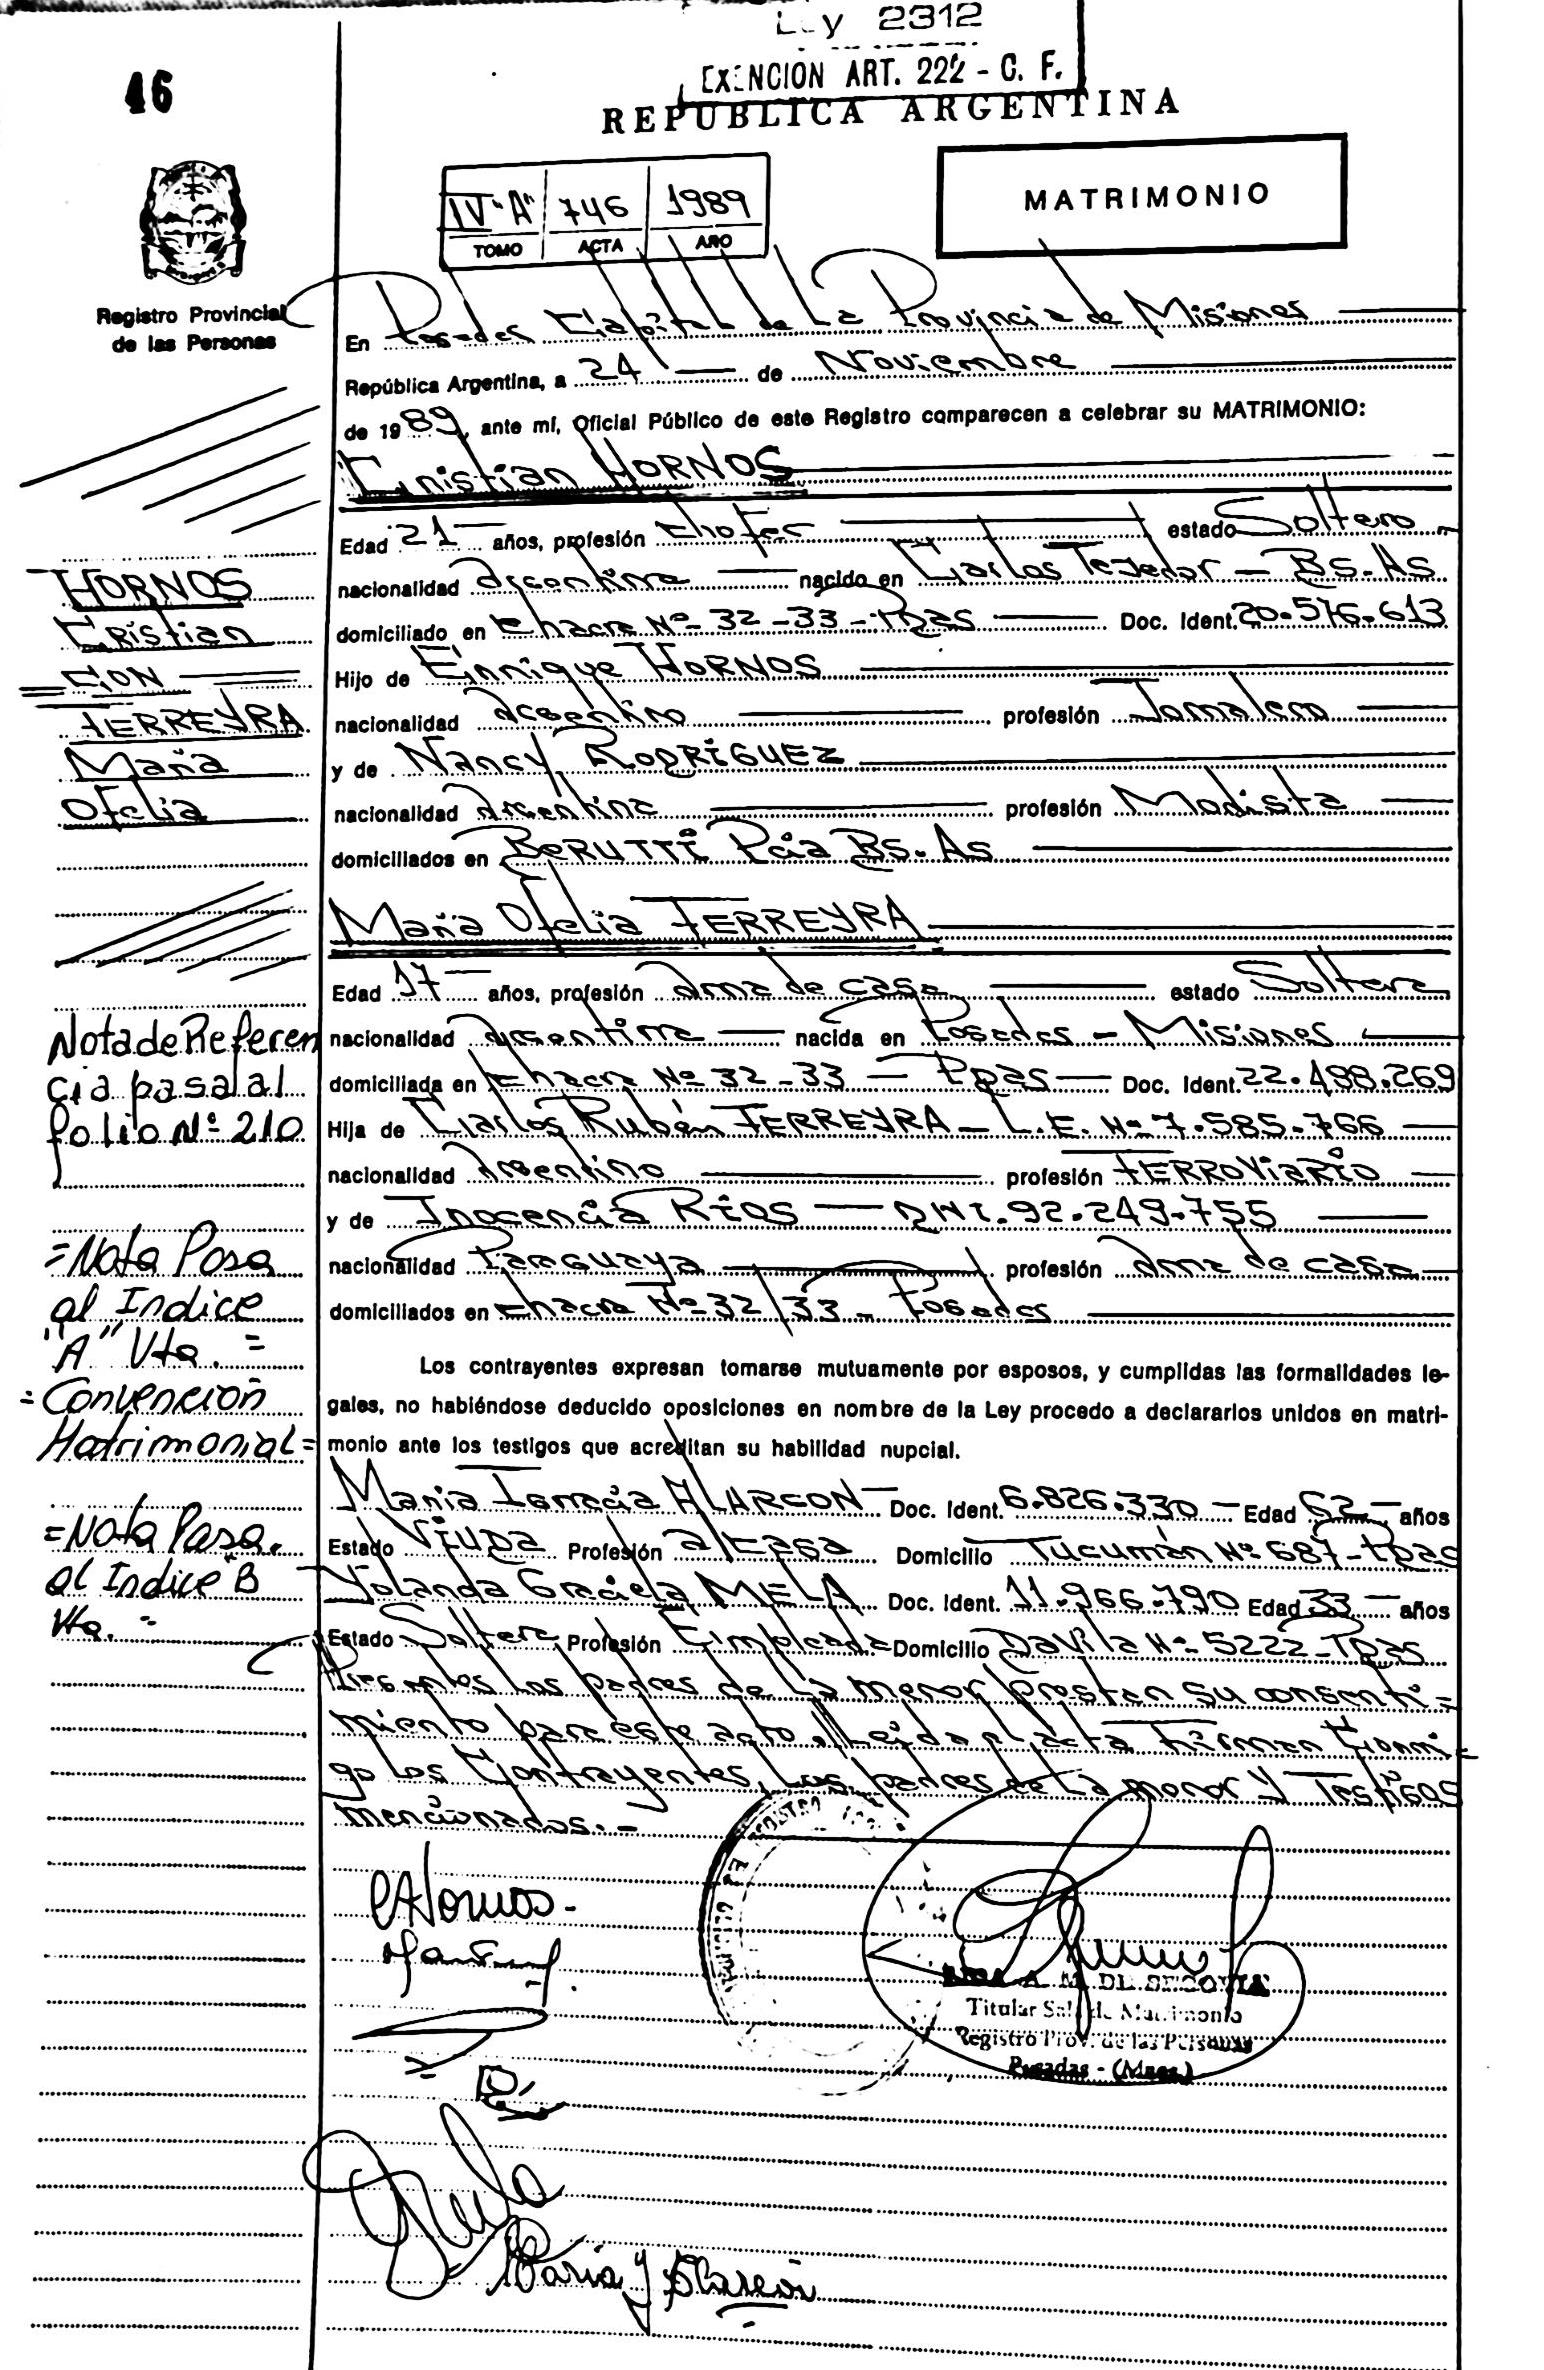 Ley 2312
EXENCION ART. 222 - C. F.
46
REPUBLICA ARGENTINA
IV "A" 746 1989
TOMO ACTA AÑO
MATRIMONIO
Registro Provincial
de las Personas
En Posadas Capital de la Provincia de Misiones
República Argentina, a 24 de Noviembre
de 1989, ante mí, Oficial Público de este Registro comparecen a celebrar su MATRIMONIO:
Cristian HORNOS
Edad 21 años, profesión chofer estado Soltero
nacionalidad argentina nacido en Carlos Tejedor - Bs. As
domiciliado en Chacra Nº 32-33 - Pdas Doc. Ident. 20.576.613
Hijo de Enrique HORNOS
nacionalidad argentino profesión Jornalero
y de Nancy RODRIGUEZ
nacionalidad argentina profesión Modista
domiciliados en BERUTTI Pcia Bs. As
María Ofelia FERREYRA
Edad 17 años, profesión ama de casa estado Soltera
nacionalidad argentina nacida en Posadas - Misiones
domiciliada en Chacra Nº 32-33 - Pdas Doc. Ident. 22.498.269
Hija de Carlos Rubén FERREYRA - L.E. Nº 7.585.766
nacionalidad argentino profesión FERROViARIO
y de Inocencia RIOS - DNI. 92.249.755
nacionalidad Paraguaya profesión ama de casa
domiciliados en Chacra Nº 32/33 - Posadas
Los contrayentes expresan tomarse mutuamente por esposos, y cumplidas las formalidades le-
gales, no habiéndose deducido oposiciones en nombre de la Ley procedo a declararlos unidos en matri-
monio ante los testigos que acreditan su habilidad nupcial.
María Ignacia ALARCON Doc. Ident. 6.826.330 - Edad 62 años
Estado Viuda Profesión a/casa Domicilio Tucumán Nº 687 - Pdas
Yolanda Graciela MELA Doc. Ident. 11.966.790 Edad 33 años
Estado Soltera Profesión Empleada Domicilio Davila Nº 5222 - Pdas
Presentes los padres de la menor prestan su consenti=
miento para este acto. Leida el acta Firman Conmi=
go los Contrayentes, los padres de la menor y Testigos
mencionados. -
HORNOS
Cristian
CON
FERREYRA
María
Ofelia
Nota de Referen
cia pasa al
folio Nº 210
=Nota Pasa
al Indice
"A" Vta. =
=Convención
Matrimonial=
=Nota Pasa
al Indice B
Vta. =
CAHornos-
A. M. DE SEGOVIA
Titular Sala de Matrimonio
Registro Prov. de las Personas
Posadas - (Mnes.)
Maria Y Alarcón